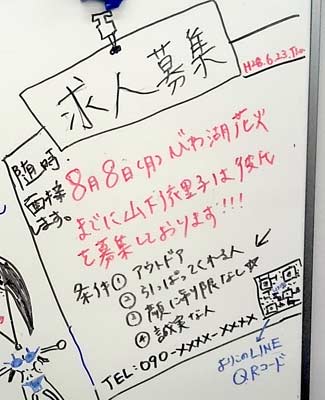 求人募集
H28.6.23.Thu
随時
面接
します。
8月8日(月)びわ湖花火
までに山下依里子は彼氏
を募集しております!!!
条件① アウトドア
② 引っぱってくれる人
③ 顔に制限なし☆
④ 誠実な人
TEL:090-xxxx-xxxx
よりこのLINE
QRコード